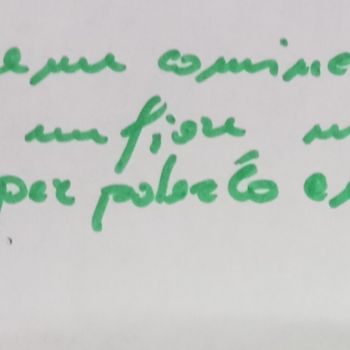 eme cominc
un fiore
per poterlo